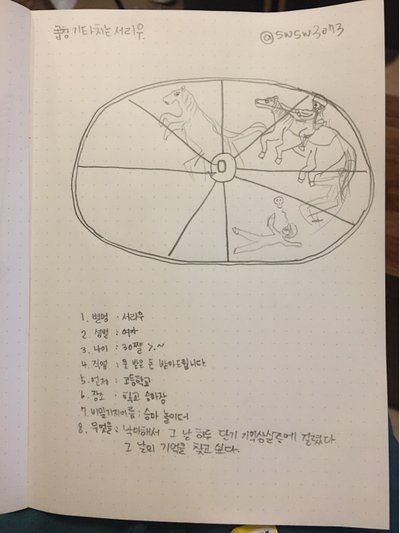 곱창 기타치는 서리우
@swsw3073
1. 별명 : 서리우
2. 성별 : 여자
3. 나이 : 30짤 >.~
4. 직업 : 못 받은 돈 받아드립니다.
5. 언제 : 고등학교
6. 장소 : 학교 승마장
7. 비밀기지이름 : 승마 놀이터
8. 무엇을 : 낙마해서 그 날 하루 단기 기억상실증에 걸렸다
그 날의 기억을 찾고 싶다.